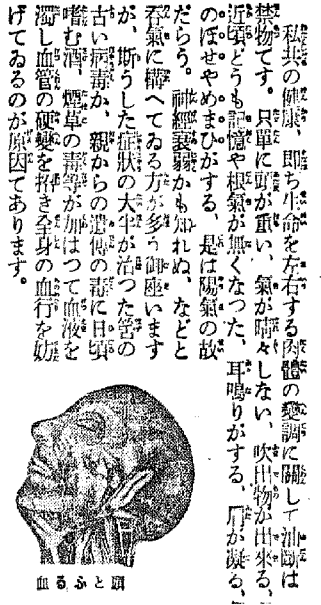 私共の健康、即ち生命を左右する肉體の變調に關して油斷は
禁物です。只單に頭が重い、氣が晴々しない、吹出物が出來る、
近頃どうも記憶や根氣が無くなつた、耳鳴りがする、肩が凝る、
のぼせやめまひがする、是は陽氣の故
だらう。神經衰弱かも知れぬ、などと
呑氣に構へてゐる方が多う御座います
が、斯うした症狀の大半が治つた筈の
古い病毒か、親からの遺傳の毒に日頃
嗜む酒、煙草の毒等が加はつて血液を
濁し血管の硬變を招き全身の血行を妨
げてゐるのが原因であります。
頭とふる血